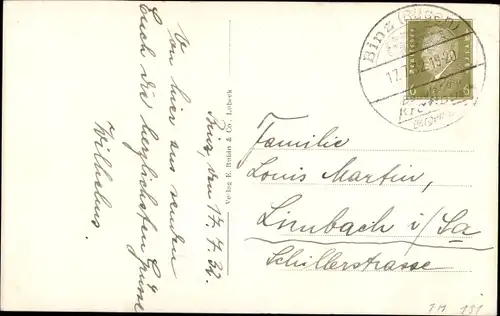 Binz, den 17.7.32.
Von hier aus senden
Euch die herzlichsten Grüsse
Wilhelms.
Verlag E. Rubin & Co., Lübeck
Binz (Rügen)
Familie
Louis Martin,
Limbach i/Sa
Schillerstrasse